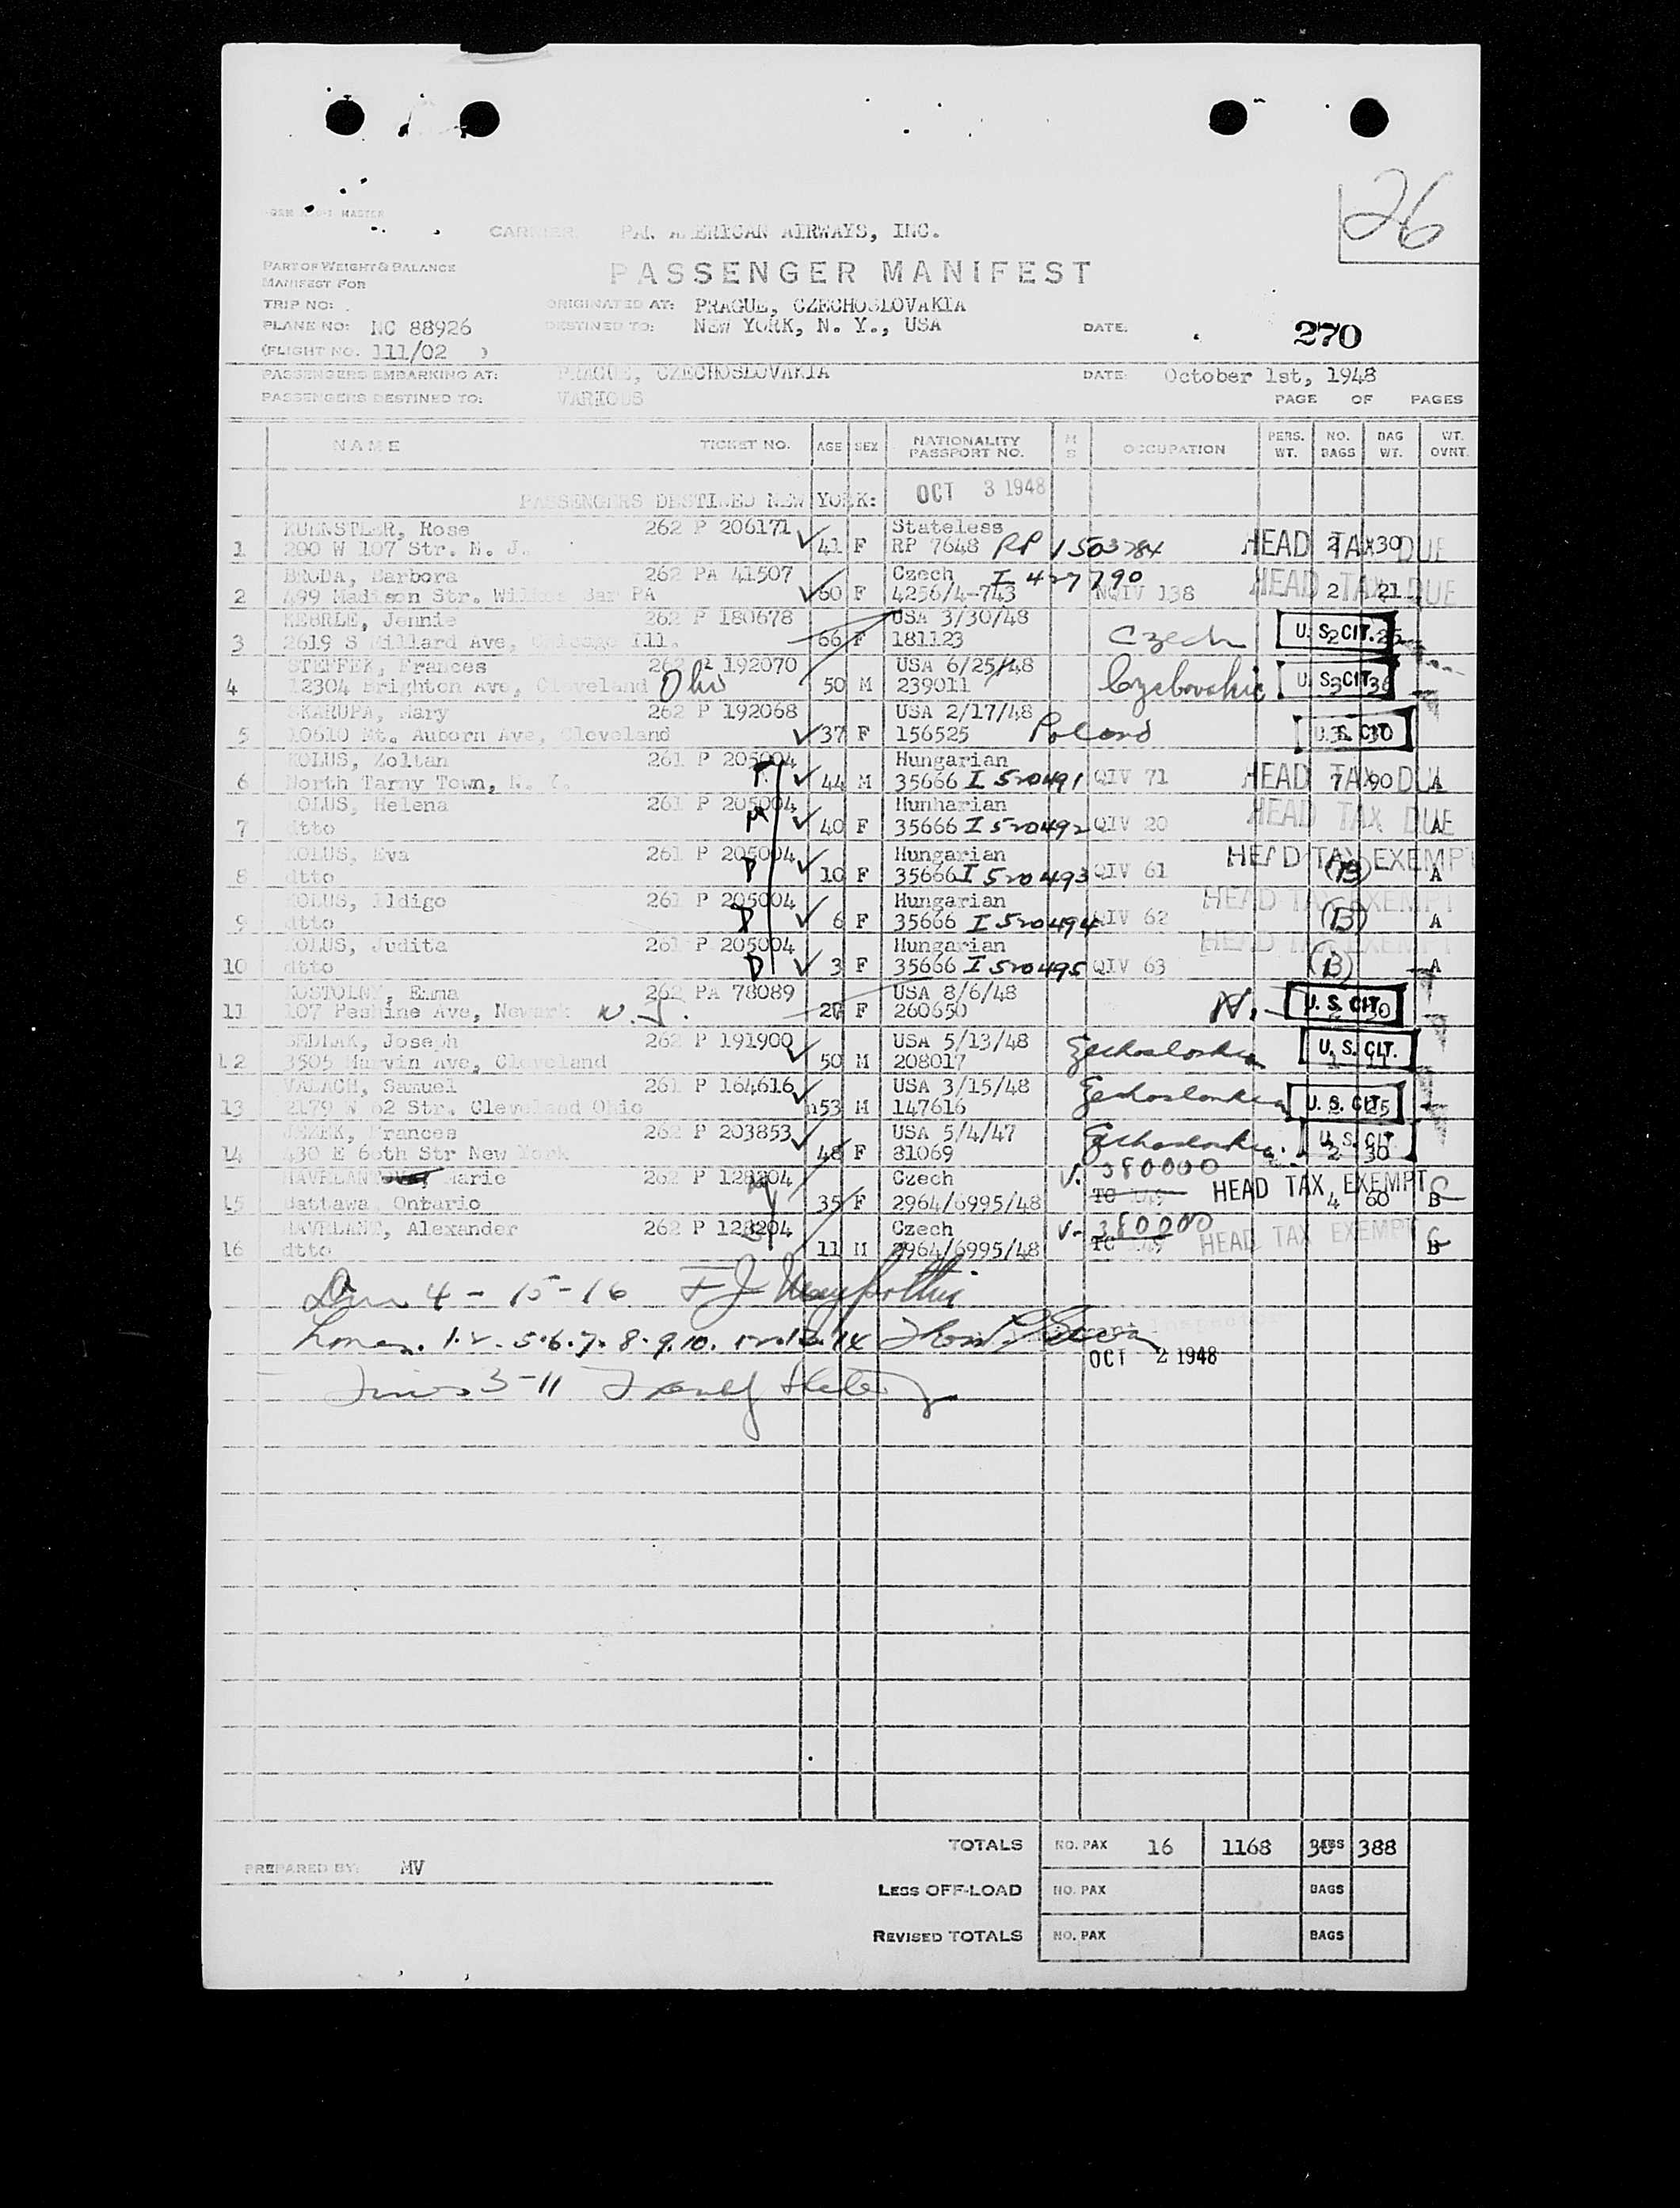 26
CARRIER PAN AMERICAN AIRWAYS, INC.
PART OF WEIGHT & BALANCE
MANIFEST FOR
PASSENGER MANIFEST
TRIP NO:
ORIGINATED AT: PRAGUE, CZECHOSLOVAKIA
PLANE NO: NC 88926 DESTINED TO: NEW YORK, N. Y., USA DATE: 270
(FLIGHT NO. 111/02 )
PASSENGERS EMBARKING AT: PRAGUE, CZECHOSLOVAKIA DATE: October 1st, 1948
PASSENGERS DESTINED TO: VARIOUS PAGE OF PAGES
NAME TICKET NO. AGE SEX NATIONALITY PASSPORT NO. M S OCCUPATION PERS. WT. NO. BAGS BAG WT. WT. OVNT.
PASSENGERS DESTINED NEW YORK: OCT 3 1948
KUENSTLER, Rose 262 P 206171 Stateless
1 200 W 107 Str. N. J. 41 F RP 7648 RP 1503784 HEAD TAX DUE 2 30
BRODA, Barbora 262 PA 41507 Czech I 427790
2 499 Madison Str. Wilkes Bar PA 60 F 4256/4-743 NQIV 138 HEAD TAX DUE 2 21
KEBRLE, Jennie 262 P 180678 USA 3/30/48
3 2619 S Millard Ave, Chicago Ill. 66 F 181123 Czech U. S. CIT. 2 25
STEFFEK, Frances 262 P 192070 USA 6/25/48
4 12304 Brighton Ave, Cleveland Ohio 50 M 239011 U. S. CIT. 3
SKARUPA, Mary 262 P 192068 USA 2/17/48
5 10610 Mt. Auborn Ave, Cleveland 37 F 156525 Poland U. S. CIT. 30
KOLUS, Zoltan 261 P 205004 Hungarian
6 North Tarny Town, N. Y. 44 M 35666 I 520491 QIV 71 HEAD TAX DUE 7 90 A
KOLUS, Helena 261 P 205004 Hunharian
7 dtto M 40 F 35666 I 520492 QIV 20 HEAD TAX DUE A
KOLUS, Eva 261 P 205004 Hungarian
8 dtto D 10 F 35666 I 520493 QIV 61 HEAD TAX EXEMPT (B) A
KOLUS, Ildigo 261 P 205004 Hungarian
9 dtto D 6 F 35666 I 520494 QIV 62 HEAD TAX EXEMPT (B) A
KOLUS, Judita 261 P 205004 Hungarian
10 dtto D 3 F 35666 I 520495 QIV 63 HEAD TAX EXEMPT (B) A
KOSTOLNY, Emma 262 PA 78089 USA 8/6/48
11 107 Peshine Ave, Newark N. J. F 260650 N. U. S. CIT. 30
SEDLAK, Joseph 262 P 191900 USA 5/13/48
12 3505 Marvin Ave, Cleveland 50 M 208017 U. S. CIT. 1 11
VALACH, Samuel 261 P 164616 USA 3/15/48
13 2179 W 62 Str. Cleveland Ohio 53 M 147616 U. S. CIT. 25
JEZEK, Frances 262 P 203853 USA 5/4/47
14 430 E 66th Str New York 48 F 31069 U. S. CIT. 2 30
HAVELANT, Marie 262 P 128204 Czech V. 380000
15 Battawa Ontario 35 F 2964/6995/48 HEAD TAX EXEMPT 4 60 B
HAVELANT, Alexander 262 P 128204 Czech V- 380000
16 dtto 11 M 2964/6995/48 HEAD TAX EXEMPT B
4 - 15 - 16 F J
Lines. 1. 2. 5. 6. 7. 8. 9. 10. 12. 13. 14 Immigrant Inspector
OCT 2 1948
Lines 3-11
TOTALS NO. PAX 16 1168 BAGS 30 388
PREPARED BY: MV
LESS OFF-LOAD NO. PAX BAGS
REVISED TOTALS NO. PAX BAGS